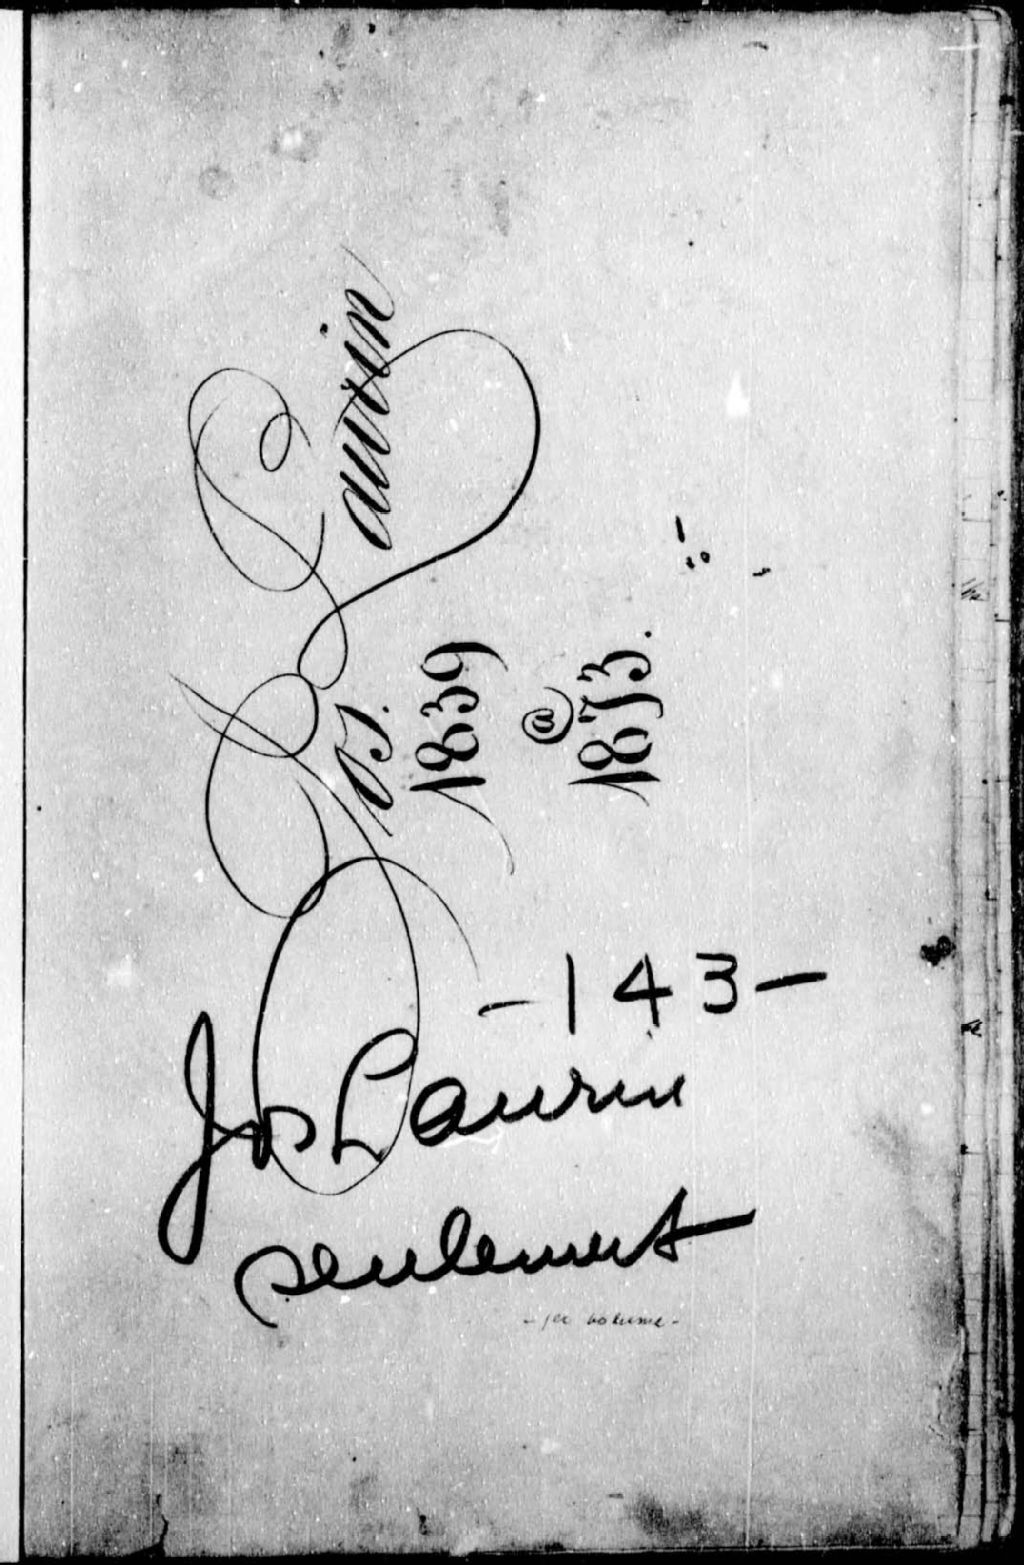 Jos. Laurin
1839
@
1873.
-143-
Jos Laurin
seulement
- 1er volume -